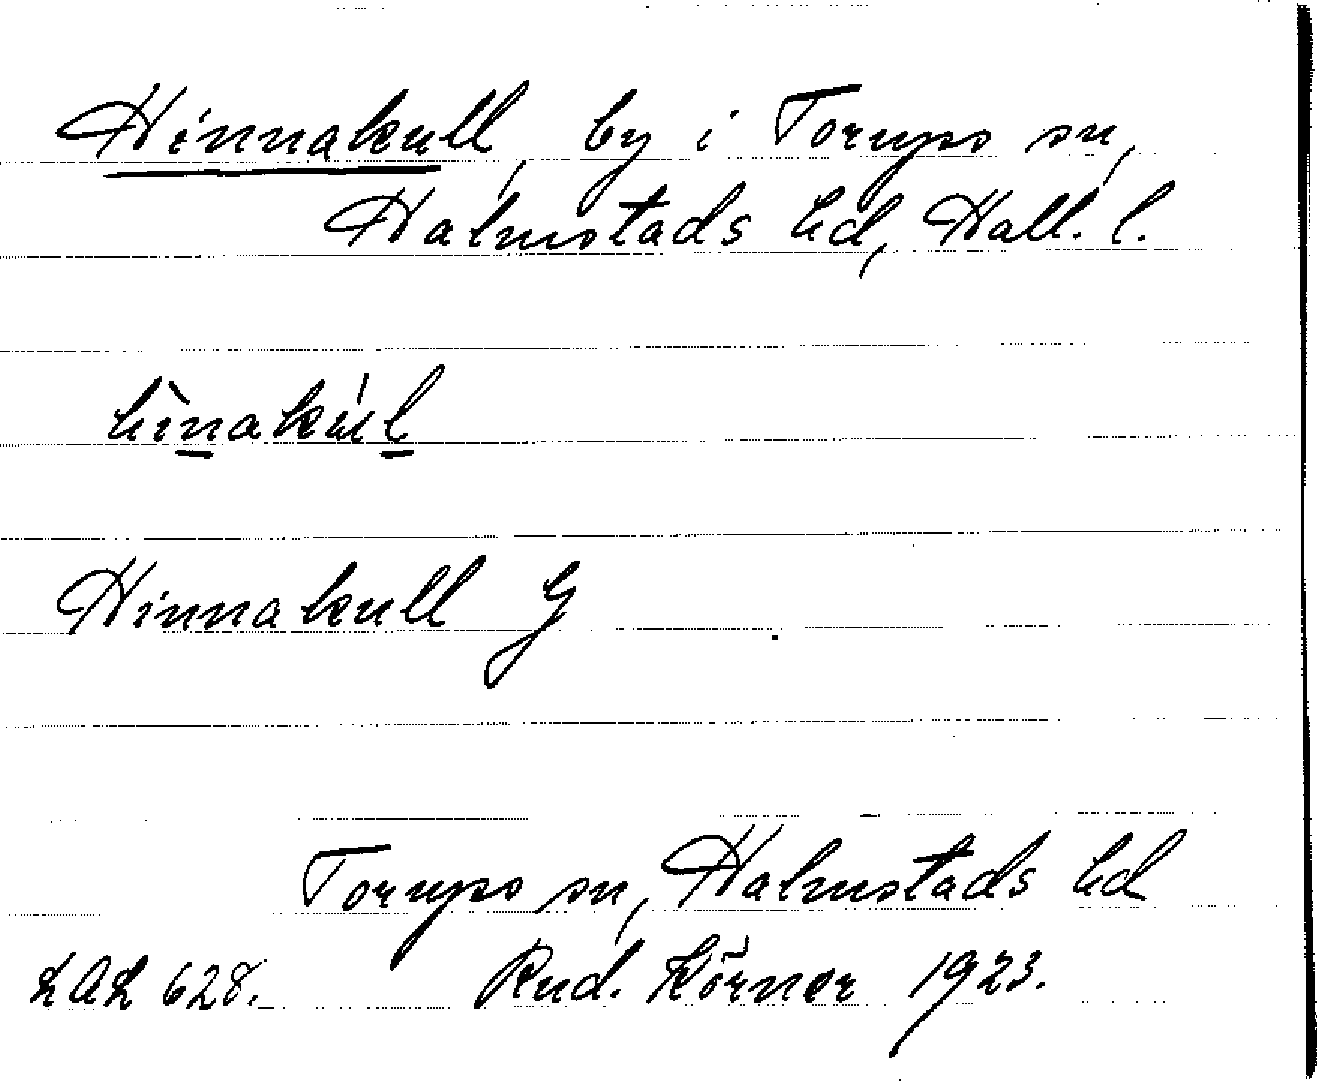 Hinnakull, by i Torups sn,
Halmstads hd, Hall. l.
hìn̲akúl̲
Hinnakull G
Torups sn, Halmstads hd
LAL 628. Rud. Körner 1923.